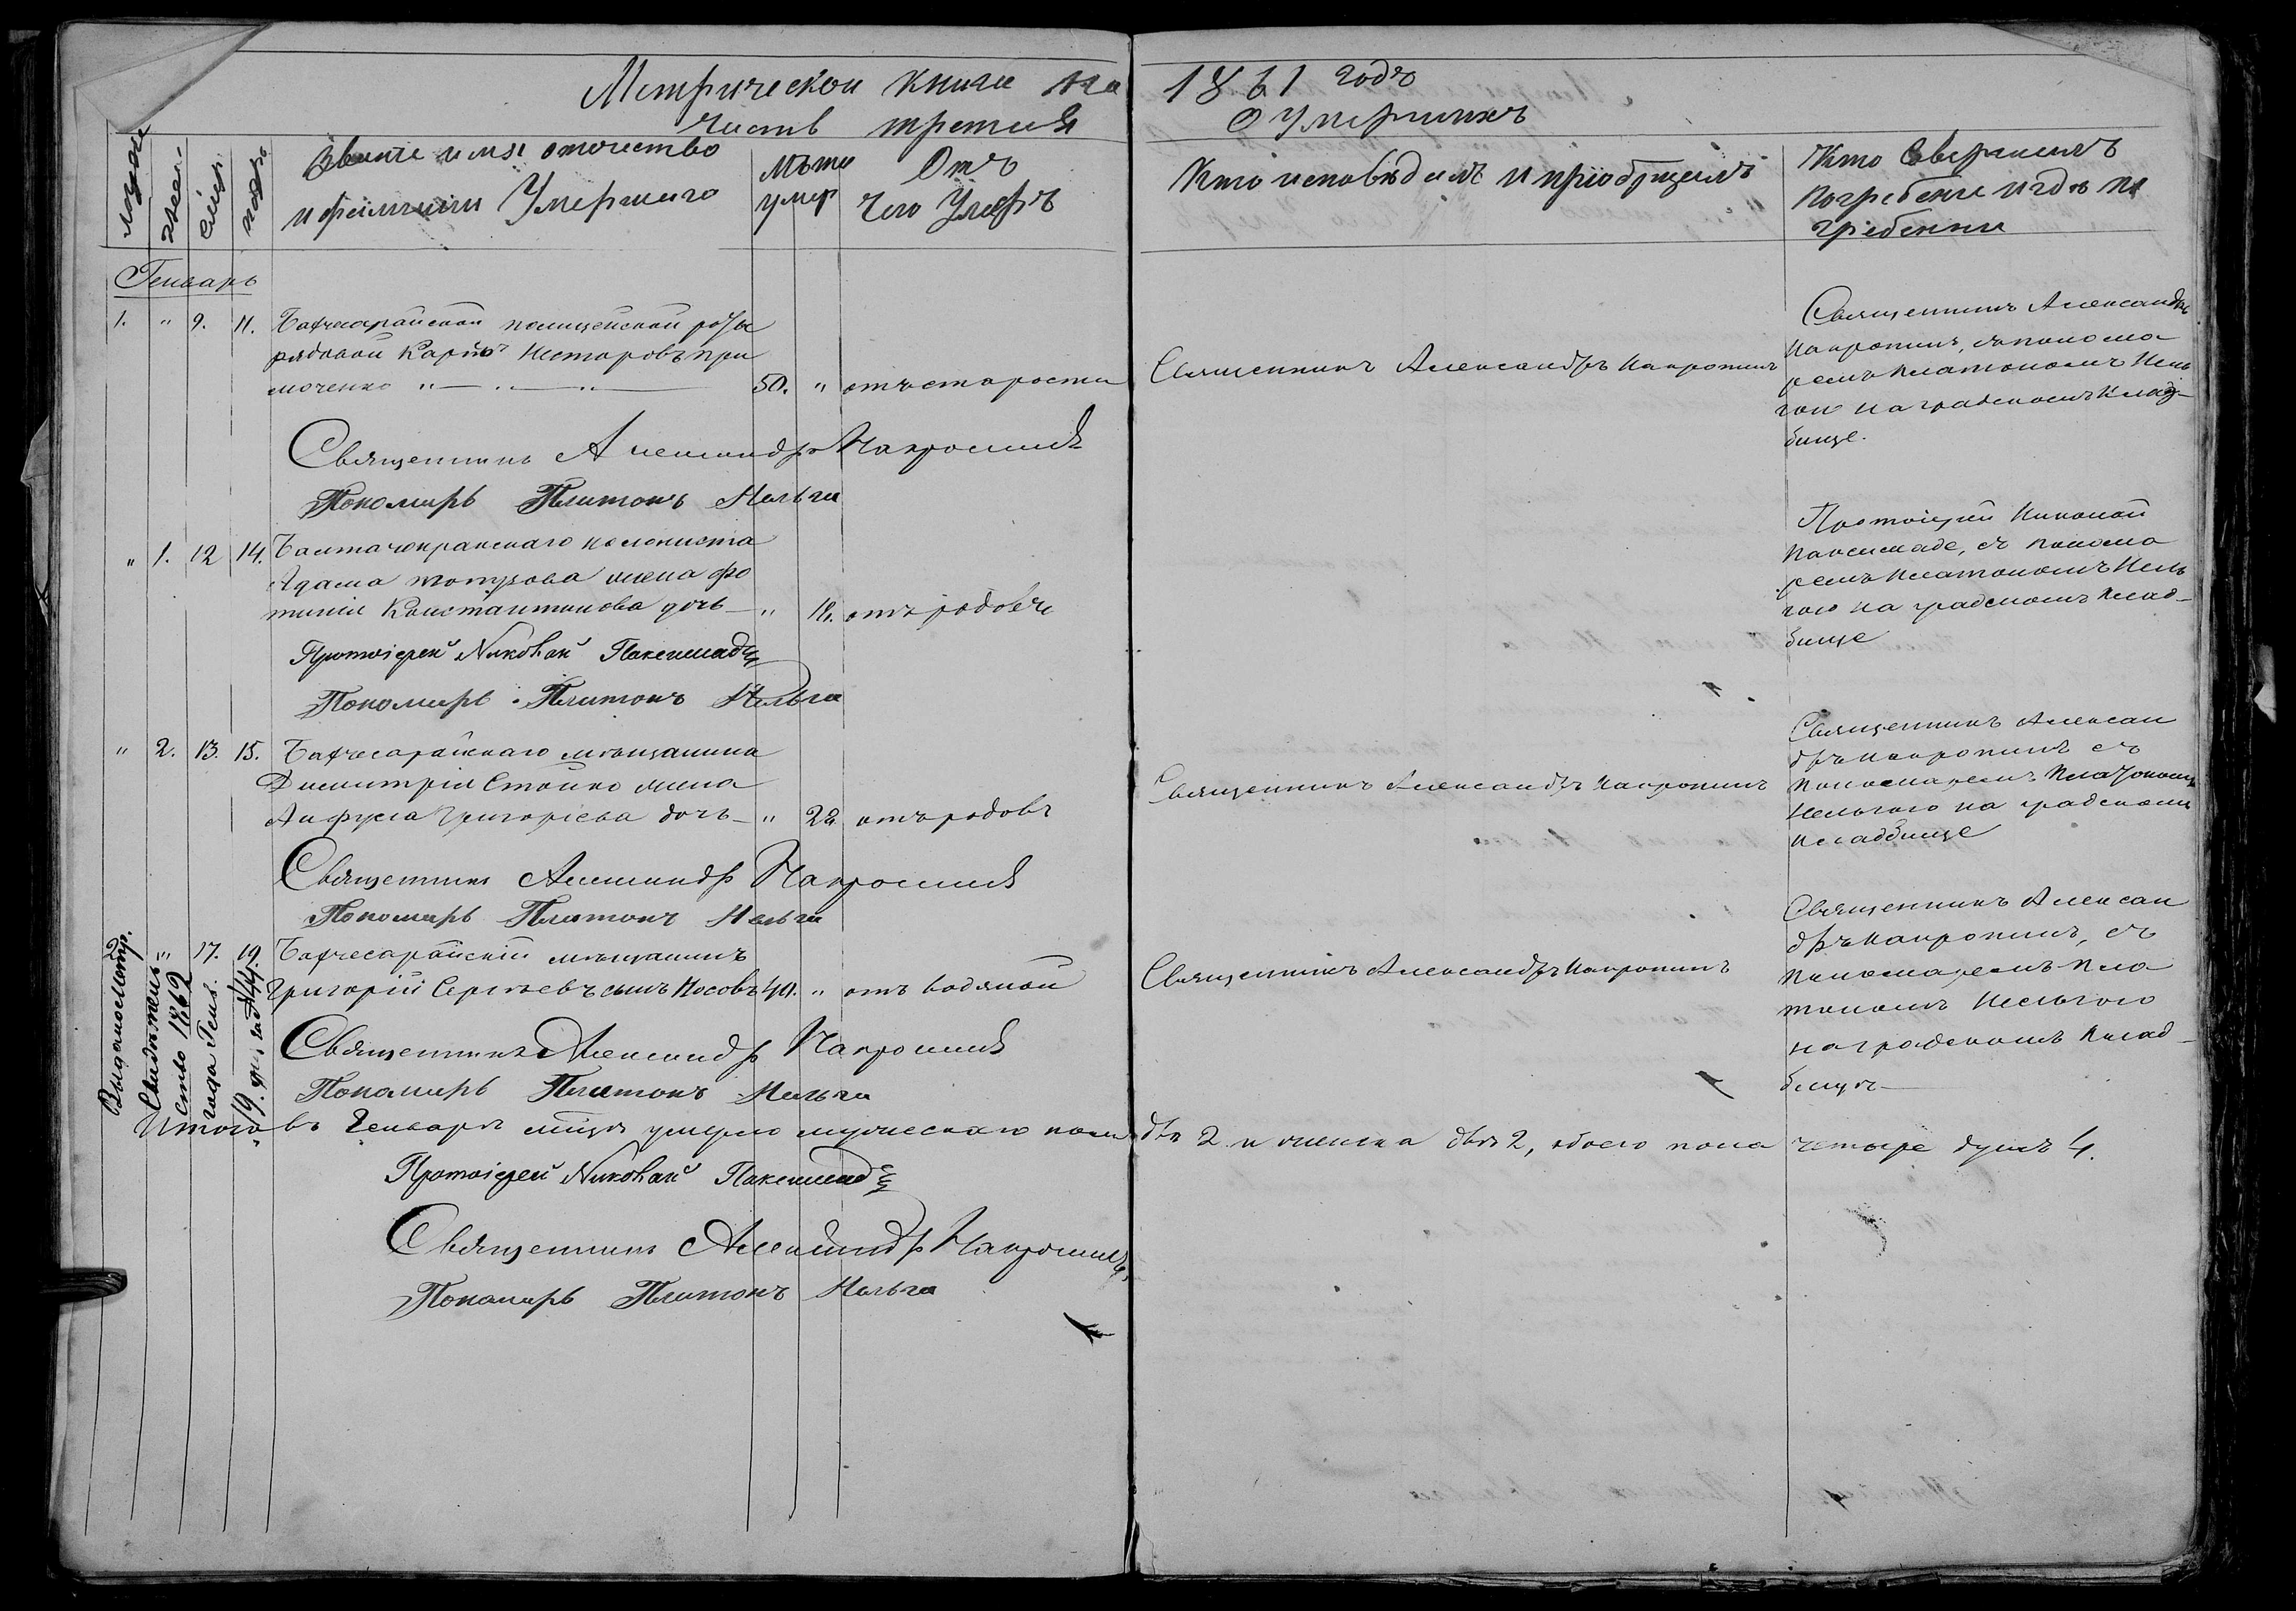 Метрической книги на 1861 годъ
Часть третья О умершихъ
мужес женс. смерт. погреб.
Званіе имя отечество
и фамилія Умершаго
Лѣта
умер
Отъ
чего Умеръ
Кто исповѣдалъ и приобщалъ
Кто Совершилъ
погребеніе и гдѣ по
гребенны
Генварь
1. " 9. 11. Бахчесарайской полицейской роты
рядовой Карпъ Несторовъ при
моченко " 50. " отъ старости
Священникъ Александръ Накропинъ
Священникъ Александръ
Накропинъ, съ понома
ремъ Платономъ Нель
гою на градскомъ клад-
бище.
Священникъ Александръ Накропинъ
Пономарь Платонъ Нельга
" 1. 12 14. колониста
Адама жена фо
тинія Константинова дочь " 18. отъ родовъ
Протоіерей Николай
съ понома
ремъ Платономъ Нель
гою на градскомъ клад-
бище
Протоіерей Николай
Пономарь Платонъ Нельга
" 2. 13. 15. Бахчесарайскаго мѣщанина
Димитрія Стойко жена
Анфуса Григоріева дочь " 22 отъ родовъ
Священникъ Александръ Накропинъ
Священникъ Алексан
дръ Накропинъ съ
пономаремъ Платономъ
Нельгою на градскомъ
кладбище
Священникъ Александръ Накропинъ
Пономарь Платонъ Нельга
2. " 17. 19. Бахчесарайскій мѣщанинъ
Григорій Сергѣевъ сынъ Носовъ 40. " отъ водяной
Священникъ Александръ Накропинъ
Священникъ Алексан
дръ Накропинъ, съ
пономаремъ Пла
тономъ Нельгою
на градскомъ клад-
бищѣ
Выдано метр.
Свидѣтель-
ство 1862
года Генв.
19. дня за № 44.
Священникъ Александръ Накропинъ
Пономарь Платонъ Нельга
Итого въ Генварѣ мѣсцѣ умерло мужескаго пола два 2 и женска двѣ 2, обоего пола четыре душъ 4.
Протоіерей Николай
Священникъ Александръ Накропинъ
Пономарь Платонъ Нельга